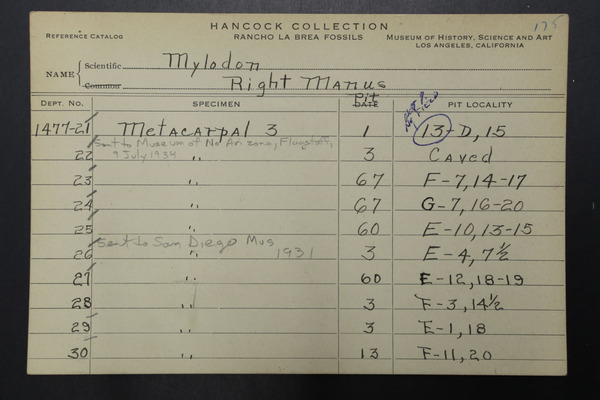 175
HANCOCK COLLECTION
REFERENCE CATALOG RANCHO LA BREA FOSSILS MUSEUM OF HISTORY, SCIENCE AND ART
LOS ANGELES, CALIFORNIA
NAME { Scientific Mylodon
Common Right Manus
DEPT. NO. SPECIMEN Pit DATE PIT LOCALITY
1477-21 Metacarpal 3 1 13-D, 15
Sent to Museum of No Arizona, Flagstaff,
22 9 July 1934 " 3 Caved
23 " 67 F-7, 14-17
24 " 67 G-7, 16-20
25 " 60 E-10, 13-15
Sent to San Diego Mus
26 " 1931 3 E-4, 7½
27 " 60 E-12, 18-19
28 " 3 F-3, 14½
29 " 3 E-1, 18
30 " 13 F-11, 20